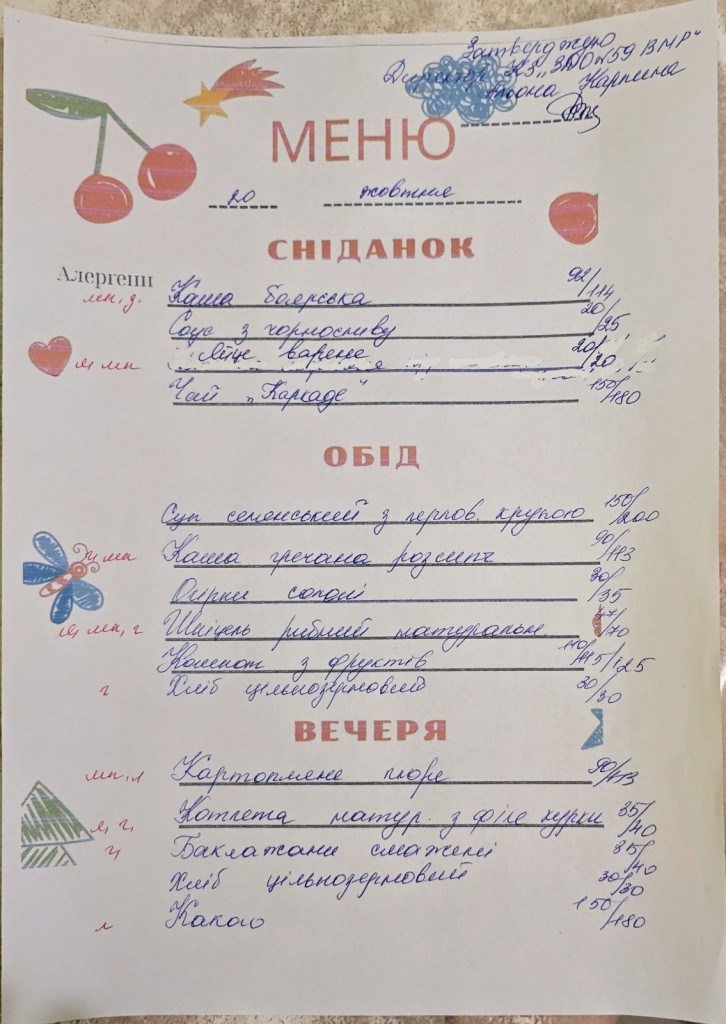 Затверджую
Директор КЗ „ЗДО №59 ВМР“
Альона Карпина
МЕНЮ
20 жовтня
СНІДАНОК
Алергени
мп, г. Каша боярська 92/114
Соус з чорносливу 20/25
Я, мп Яйце варене 20/20
Чай „Каркаде“ 150/180
ОБІД
Суп селянський з перлов. крупою 150/200
мп Каша гречана розсипч 90/113
Огірки солоні 30/35
Я, мп, г Шніцель рибний натуральн /70
Компот з фруктів /125
г Хліб цільнозерновий 30/30
ВЕЧЕРЯ
мп, л Картопляне пюре 90/113
Я, г, Котлета натур. з філе курки 35/40
Баклажани смажені 35/40
Хліб цільнозерновий 30/30
л Какао 150/180